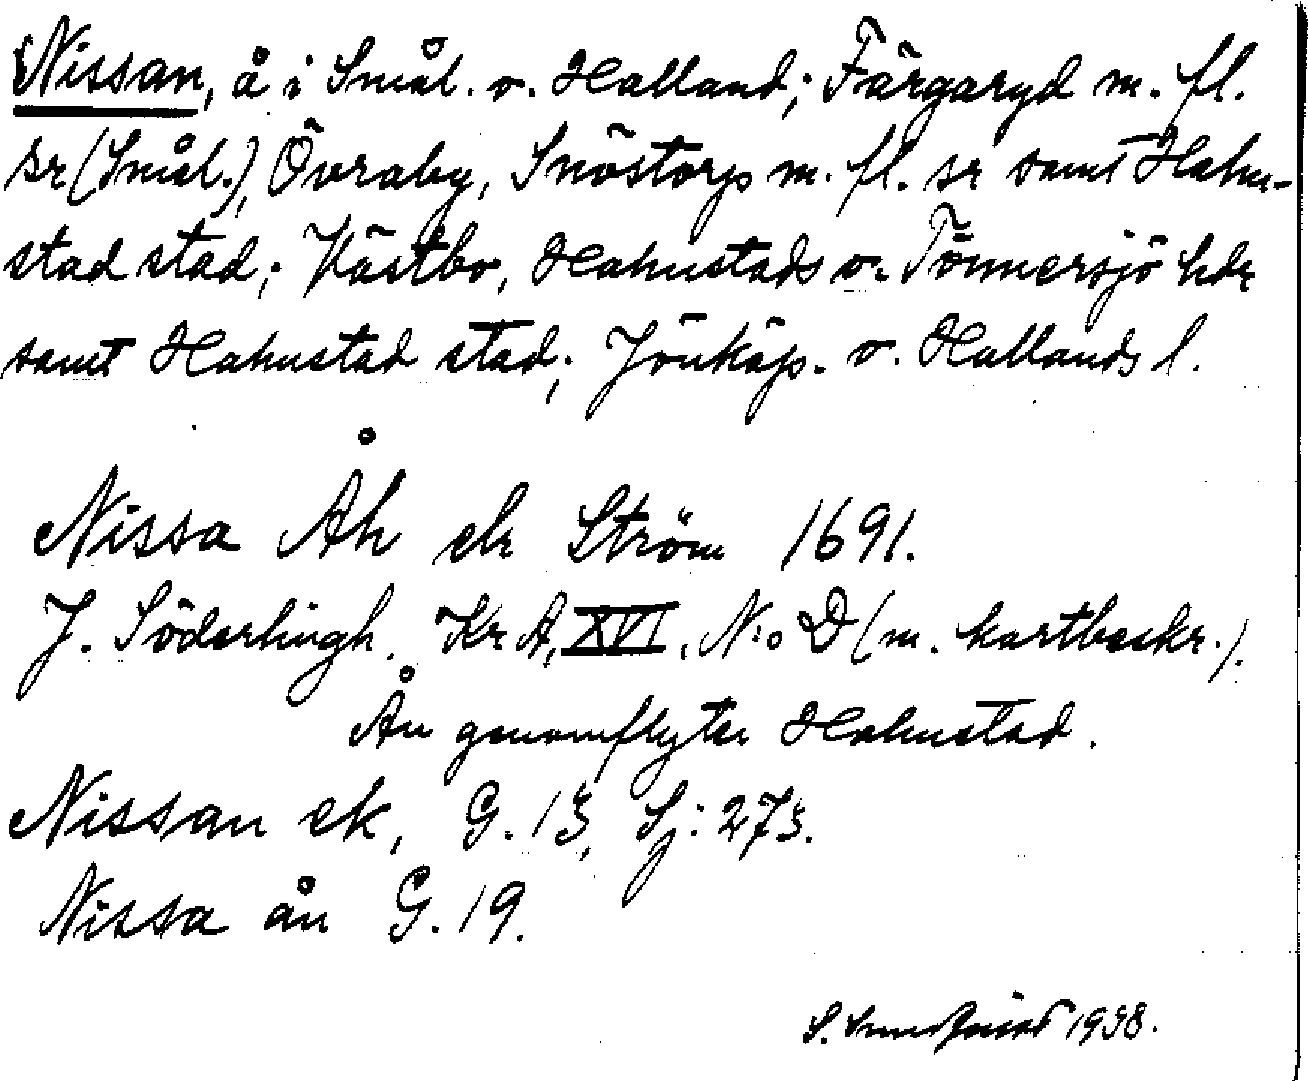 Nissan, å i Smål. o. Halland; Färgaryd m. fl.
sr (Smål.), Övraby, Snöstorp m. fl. sr samt Halm-
stad stad; Västbo, Halmstads o. Tönnersjö hdr
samt Halmstad stad; Jönköp. o. Hallands l.
Nissa Åh elr Ström 1691.
J. Söderlingh. Kr A, XVI, N:o D (m. kartbeskr.).
Ån genomflyter Halmstad.
Nissan ek, G. 13, Sj: 273.
Nissa ån G. 19.
S. 1938.